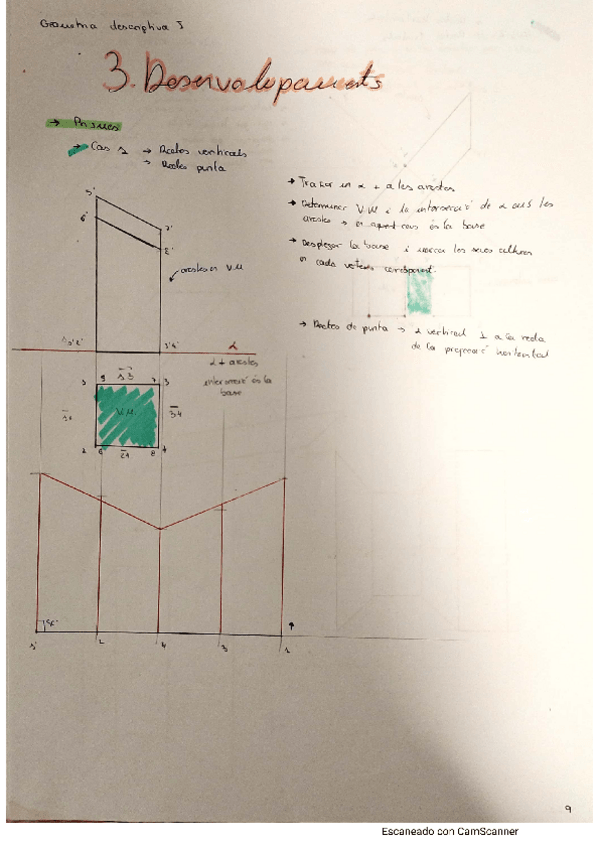 Geometria descriptiva I
3. Desenvolupaments
→ Prismes
→ Cas 1 → Rectes verticals
→ Rectes punta
→ Traçar un α ⊥ a les arestes
→ Determinar V.M i la intersecció de α amb les
arestes → en aquest cas és la base
→ Desplegar la base i marcar les seves altures
en cada vertex corresponent.
→ Rectes de punta → α vertical ⊥ a la
de la projecció horitzontal
5'
6'
7'
8'
arestes en V.M
1'2'
3'4'
α
α ⊥ arestes
intersecció és la
base
1 5 13 7 3
V.M.
34
2 6 24 8 4
1 2 4 3 1
9
Escaneado con CamScanner